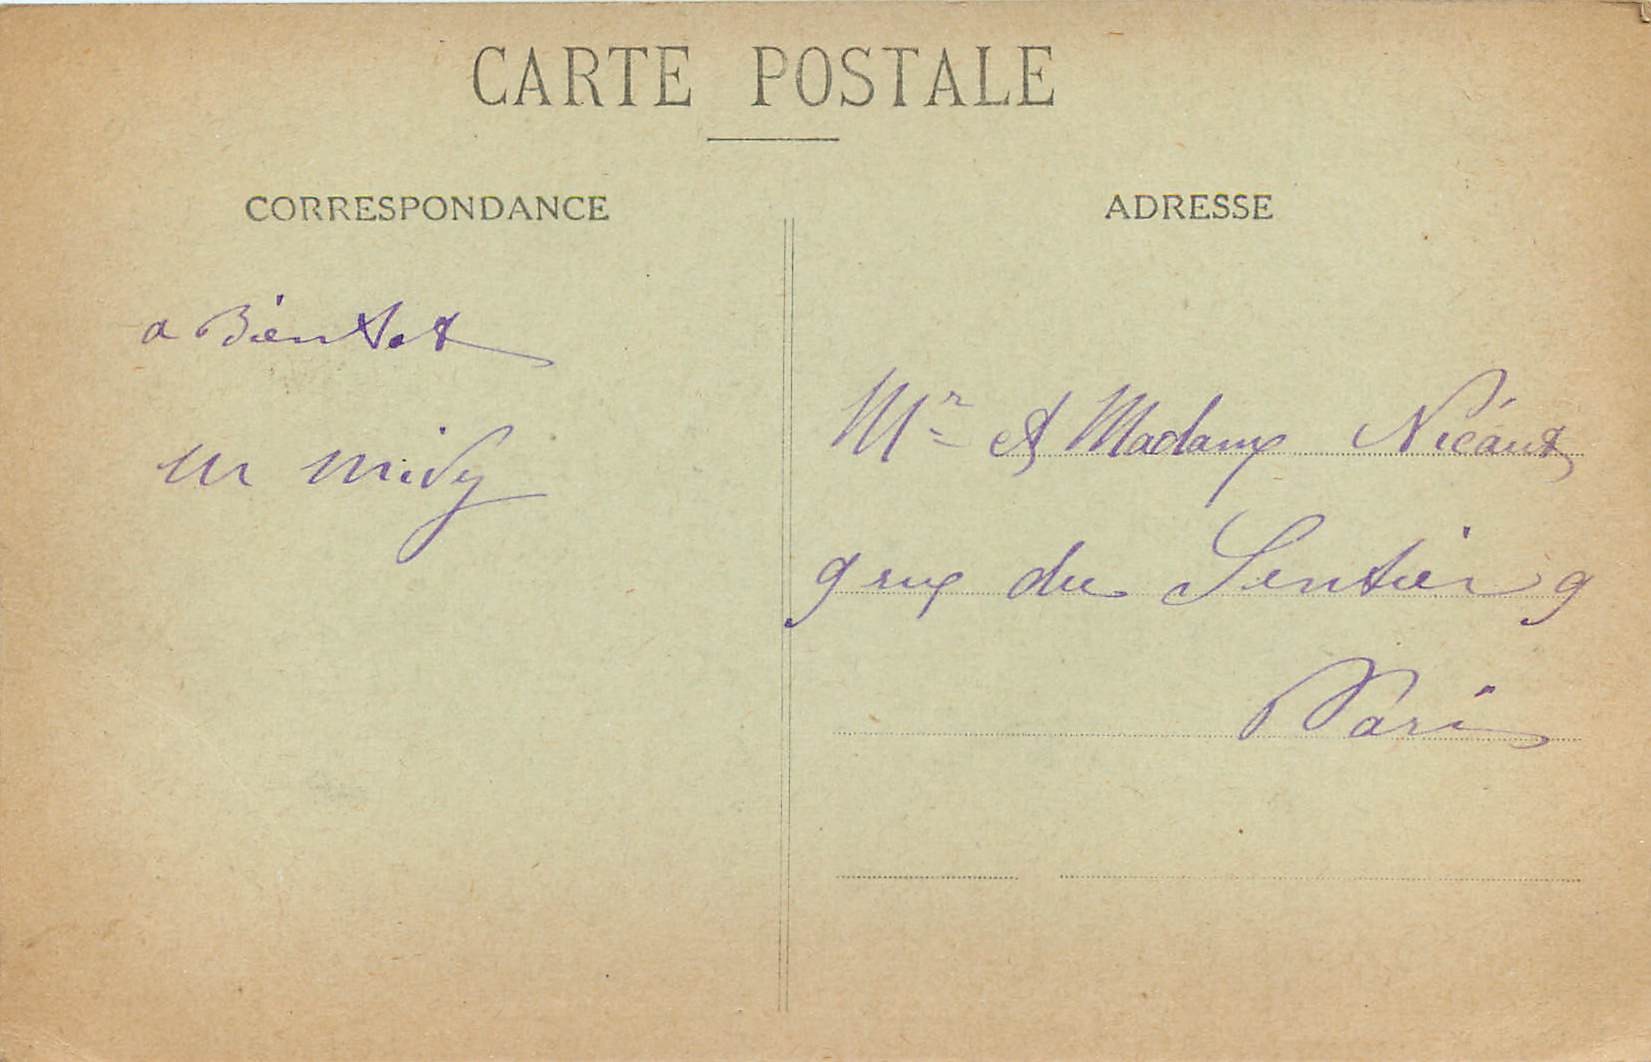 CARTE POSTALE
CORRESPONDANCE
a Bientot
un midy
ADRESSE
Mr et Madame
9 rue du Sentier 9
Paris